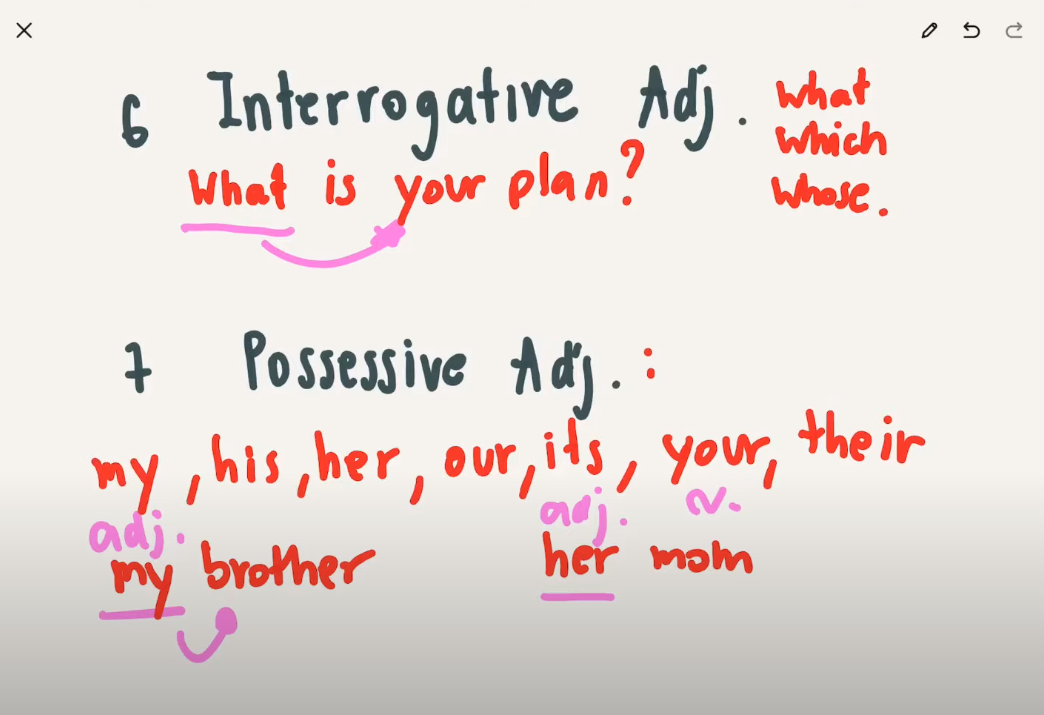 6 Interrogative Adj.
what
which
whose.
What is your plan?
7 Possessive Adj. :
my, his, her, our, its, your, their
adj. adj. N.
my brother her mom